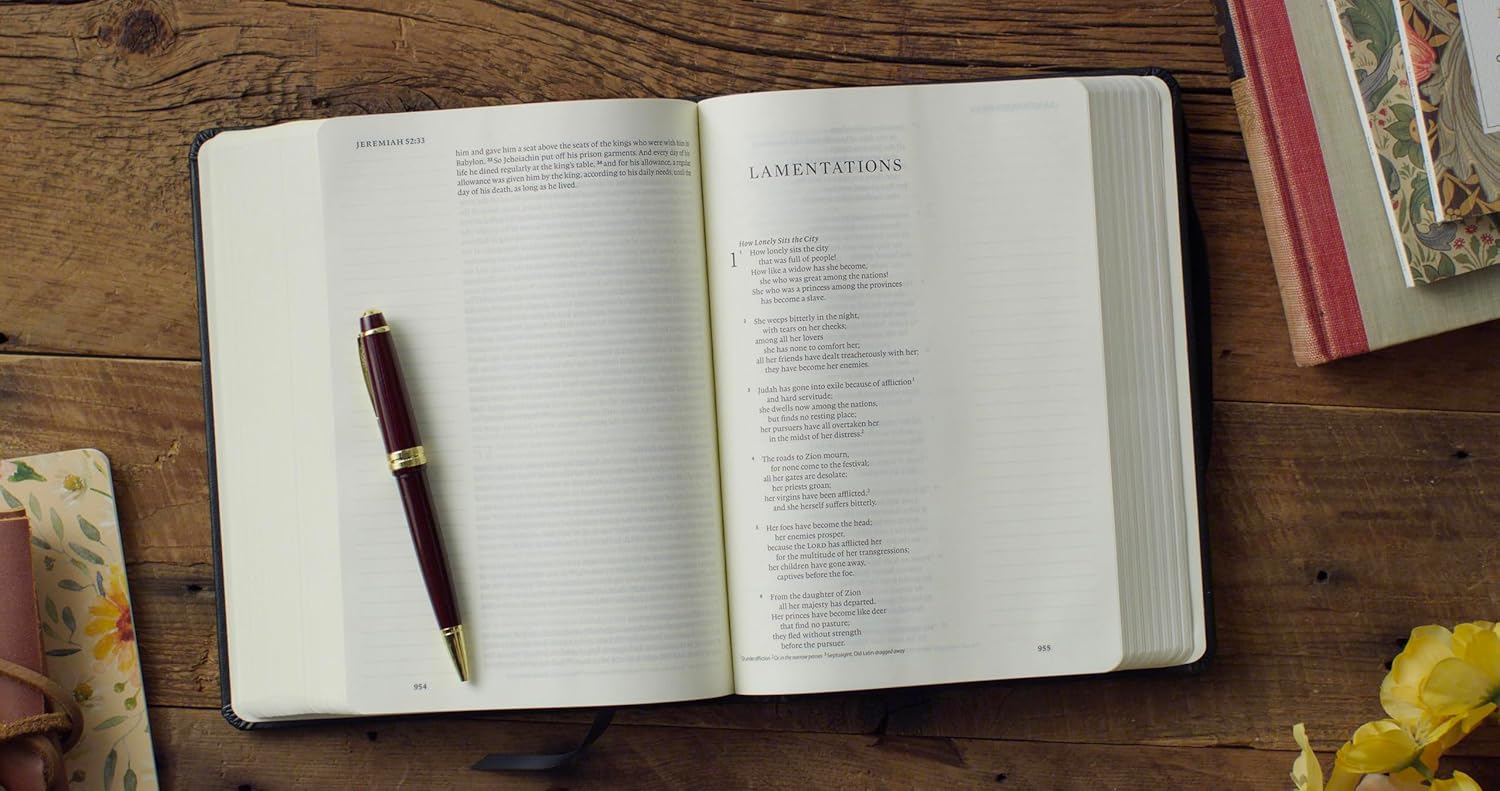 JEREMIAH 52:33
him and gave him a seat above the seats of the kings who were with him in
Babylon. 33 So Jehoiachin put off his prison garments. And every day of his
life he dined regularly at the king's table, 34 and for his allowance, a regular
allowance was given him by the king, according to his daily needs, until the
day of his death, as long as he lived.
954
LAMENTATIONS
How Lonely Sits the City
1 How lonely sits the city
that was full of people!
How like a widow has she become,
she who was great among the nations!
She who was a princess among the provinces
has become a slave.
2 She weeps bitterly in the night,
with tears on her cheeks;
among all her lovers
she has none to comfort her;
all her friends have dealt treacherously with her;
they have become her enemies.
3 Judah has gone into exile because of affliction1
and hard servitude;
she dwells now among the nations,
but finds no resting place;
her pursuers have all overtaken her
in the midst of her distress.2
4 The roads to Zion mourn,
for none come to the festival;
all her gates are desolate;
her priests groan;
her virgins have been afflicted,3
and she herself suffers bitterly.
5 Her foes have become the head;
her enemies prosper,
because the LORD has afflicted her
for the multitude of her transgressions;
her children have gone away,
captives before the foe.
6 From the daughter of Zion
all her majesty has departed.
Her princes have become like deer
that find no pasture;
they fled without strength
before the pursuer.
affliction 2 Or in the narrow passes 3 Septuagint, Old Latin dragged away
955